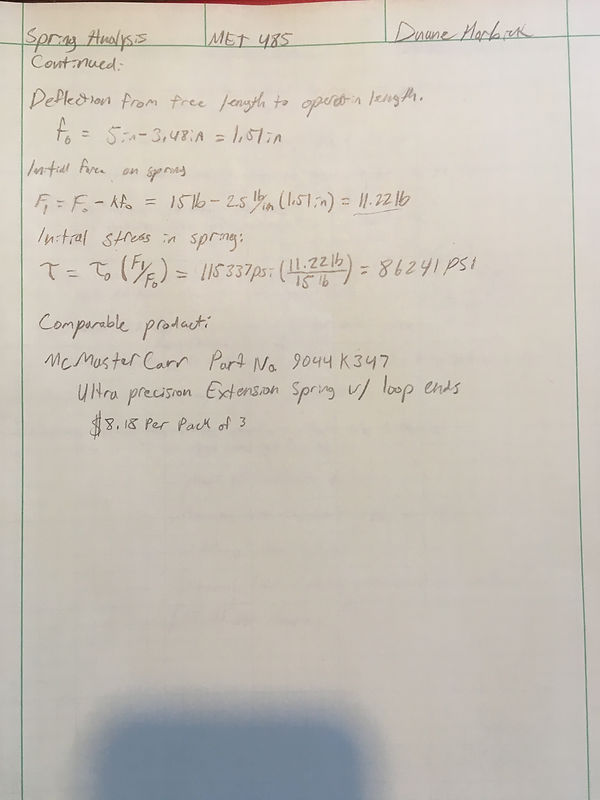 Spring Analysis MET 485 Duane
Continued:
Deflection from free length to operatin length.
fo = 5in - 3.48in = 1.51in
Initial force on spring
F1 = Fo - kfo = 15 lb - 2.5 lb/in (1.51 in) = 11.22 lb
Initial stress in spring:
τ = τo (F1/Fo) = 115337psi (11.22 lb/15 lb) = 86241 PSI
Comparable product:
McMaster Carr Part No. 9044K347
Ultra precision Extension Spring w/ loop ends
$8.18 Per Pack of 3